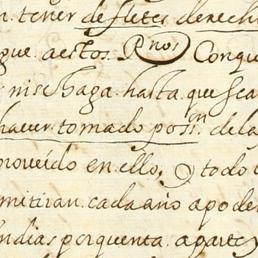 n tener de fletes derech
gue aestos Rnos Conque
nise haga hasta que sea
hauer tomado poson. de la
proueido en ello, y todo
mitiran cada año apode
Indias por quenta aparte y